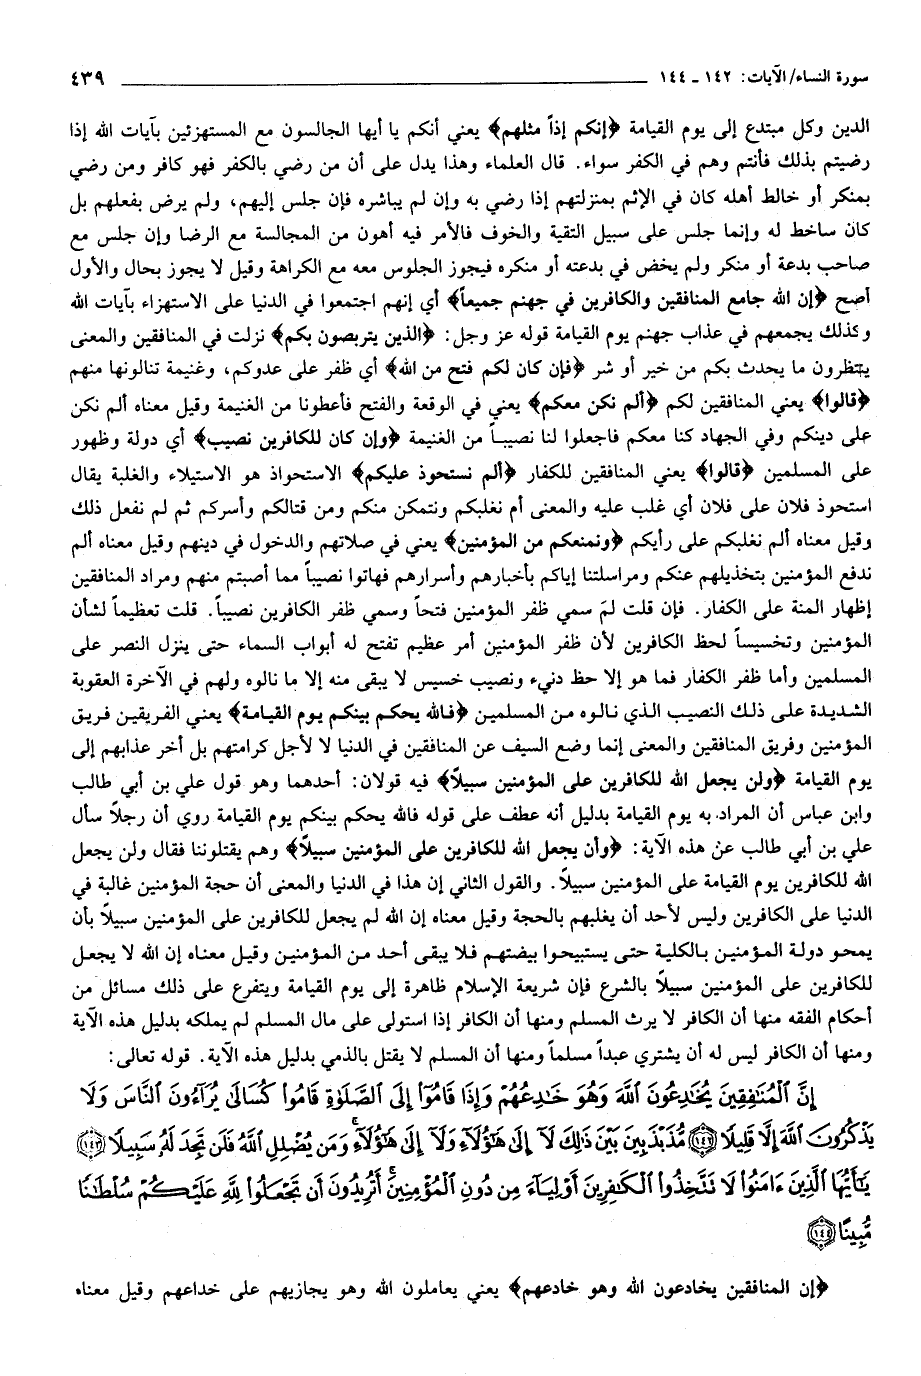 سورة النساء/ الآيات: ١٤٢ ـ ١٤٤ ٤٣٩
الدين وكل مبتدع إلى يوم القيامة ﴿إنكم إذاً مثلهم﴾ يعني أنكم يا أيها الجالسون مع المستهزئين بآيات الله إذا
رضيتم بذلك فأنتم وهم في الكفر سواء. قال العلماء وهذا يدل على أن من رضي بالكفر فهو كافر ومن رضي
بمنكر أو خالط أهله كان في الإثم بمنزلتهم إذا رضي به وإن لم يباشره فإن جلس إليهم، ولم يرض بفعلهم بل
كان ساخط له وإنما جلس على سبيل التقية والخوف فالأمر فيه أهون من المجالسة مع الرضا وإن جلس مع
صاحب بدعة أو منكر ولم يخض في بدعته أو منكره فيجوز الجلوس معه مع الكراهة وقيل لا يجوز بحال والأول
أصح ﴿إن الله جامع المنافقين والكافرين في جهنم جميعاً﴾ أي إنهم اجتمعوا في الدنيا على الاستهزاء بآيات الله
وكذلك يجمعهم في عذاب جهنم يوم القيامة قوله عز وجل: ﴿الذين يتربصون بكم﴾ نزلت في المنافقين والمعنى
ينتظرون ما يحدث بكم من خير أو شر ﴿فإن كان لكم فتح من الله﴾ أي ظفر على عدوكم، وغنيمة تنالونها منهم
﴿قالوا﴾ يعني المنافقين لكم ﴿ألم نكن معكم﴾ يعني في الوقعة والفتح فأعطونا من الغنيمة وقيل معناه ألم نكن
على دينكم وفي الجهاد كنا معكم فاجعلوا لنا نصيباً من الغنيمة ﴿وإن كان للكافرين نصيب﴾ أي دولة وظهور
على المسلمين ﴿قالوا﴾ يعني المنافقين للكفار ﴿ألم نستحوذ عليكم﴾ الاستحواذ هو الاستيلاء والغلبة يقال
استحوذ فلان على فلان أي غلب عليه والمعنى أم نغلبكم ونتمكن منكم ومن قتالكم وأسركم ثم لم نفعل ذلك
وقيل معناه ألم نغلبكم على رأيكم ﴿ونمنعكم من المؤمنين﴾ يعني في صلاتهم والدخول في دينهم وقيل معناه ألم
ندفع المؤمنين بتخذيلهم عنكم ومراسلتنا إياكم بأخبارهم وأسرارهم فهاتوا نصيباً مما أصبتم منهم ومراد المنافقين
إظهار المنة على الكفار. فإن قلت لمَ سمي ظفر المؤمنين فتحاً وسمي ظفر الكافرين نصيباً. قلت تعظيماً لشأن
المؤمنين وتخسيساً لحظ الكافرين لأن ظفر المؤمنين أمر عظيم تفتح له أبواب السماء حتى ينزل النصر على
المسلمين وأما ظفر الكفار فما هو إلا حظ دنيء ونصيب خسيس لا يبقى منه إلا ما نالوه ولهم في الآخرة العقوبة
الشديدة على ذلك النصيب الذي نالوه من المسلمين ﴿فالله يحكم بينكم يوم القيامة﴾ يعني الفريقين فريق
المؤمنين وفريق المنافقين والمعنى إنما وضع السيف عن المنافقين في الدنيا لا لأجل كرامتهم بل أخر عذابهم إلى
يوم القيامة ﴿ولن يجعل الله للكافرين على المؤمنين سبيلاً﴾ فيه قولان: أحدهما وهو قول علي بن أبي طالب
وابن عباس أن المراد به يوم القيامة بدليل أنه عطف على قوله فالله يحكم بينكم يوم القيامة روي أن رجلاً سأل
علي بن أبي طالب عن هذه الآية: ﴿وأن يجعل الله للكافرين على المؤمنين سبيلاً﴾ وهم يقتلوننا فقال ولن يجعل
الله للكافرين يوم القيامة على المؤمنين سبيلاً. والقول الثاني إن هذا في الدنيا والمعنى أن حجة المؤمنين غالبة في
الدنيا على الكافرين وليس لأحد أن يغلبهم بالحجة وقيل معناه إن الله لم يجعل للكافرين على المؤمنين سبيلاً بأن
يمحو دولة المؤمنين بالكلية حتى يستبيحوا بيضتهم فلا يبقى أحد من المؤمنين وقيل معناه إن الله لا يجعل
للكافرين على المؤمنين سبيلاً بالشرع فإن شريعة الإسلام ظاهرة إلى يوم القيامة ويتفرع على ذلك مسائل من
أحكام الفقه منها أن الكافر لا يرث المسلم ومنها أن الكافر إذا استولى على مال المسلم لم يملكه بدليل هذه الآية
ومنها أن الكافر ليس له أن يشتري عبداً مسلماً ومنها أن المسلم لا يقتل بالذمي بدليل هذه الآية. قوله تعالى:
إِنَّ ٱلْمُنَٰفِقِينَ يُخَٰدِعُونَ ٱللَّهَ وَهُوَ خَٰدِعُهُمْ وَإِذَا قَامُوٓا۟ إِلَى ٱلصَّلَوٰةِ قَامُوا۟ كُسَالَىٰ يُرَآءُونَ ٱلنَّاسَ وَلَا
يَذْكُرُونَ ٱللَّهَ إِلَّا قَلِيلًا ﴿١٤٢﴾ مُّذَبْذَبِينَ بَيْنَ ذَٰلِكَ لَآ إِلَىٰ هَٰٓؤُلَآءِ وَلَآ إِلَىٰ هَٰٓؤُلَآءِ ۚ وَمَن يُضْلِلِ ٱللَّهُ فَلَن تَجِدَ لَهُۥ سَبِيلًا ﴿١٤٣﴾
يَٰٓأَيُّهَا ٱلَّذِينَ ءَامَنُوا۟ لَا تَتَّخِذُوا۟ ٱلْكَٰفِرِينَ أَوْلِيَآءَ مِن دُونِ ٱلْمُؤْمِنِينَ ۚ أَتُرِيدُونَ أَن تَجْعَلُوا۟ لِلَّهِ عَلَيْكُمْ سُلْطَٰنًا
مُّبِينًا ﴿١٤٤﴾
﴿إن المنافقين يخادعون الله وهو خادعهم﴾ يعني يعاملون الله وهو يجازيهم على خداعهم وقيل معناه